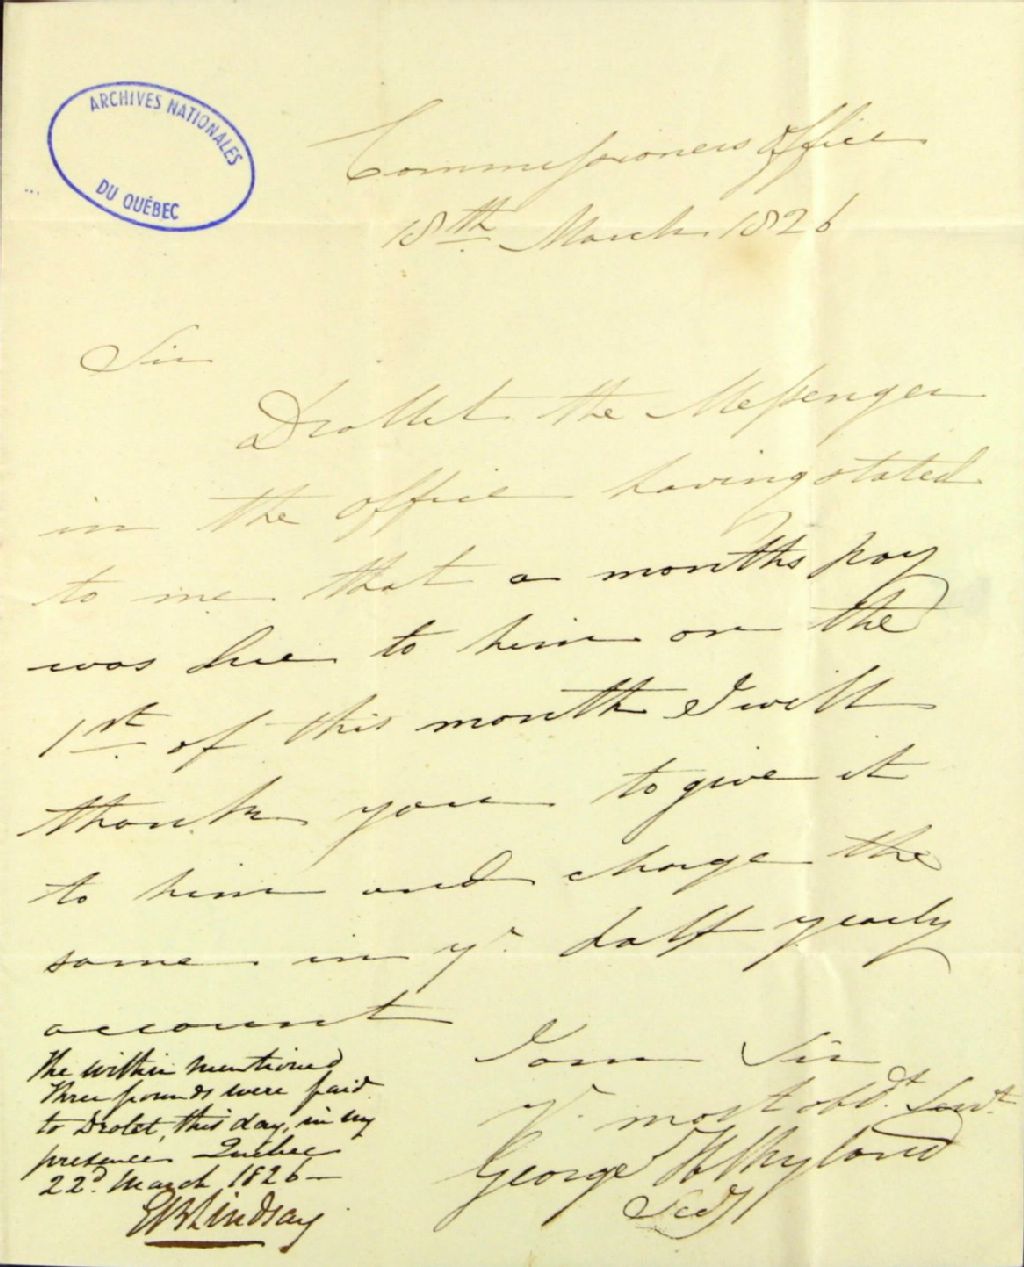 ARCHIVES NATIONALES
DU QUÉBEC
Commissioners Office
18th March 1826
Sir
Drollet the Messenger
in the office having stated
to me that a months pay
was due to him on the
1st of this month I will
thank you to give it
to him and charge the
same in yr half yearly
account
I am Sir
Yr most obdt Servt
George H Ryland
Secy
The within mentioned
three pounds were paid
to Drolet, this day, in my
presence Quebec
22d March 1826 —
Lindsay